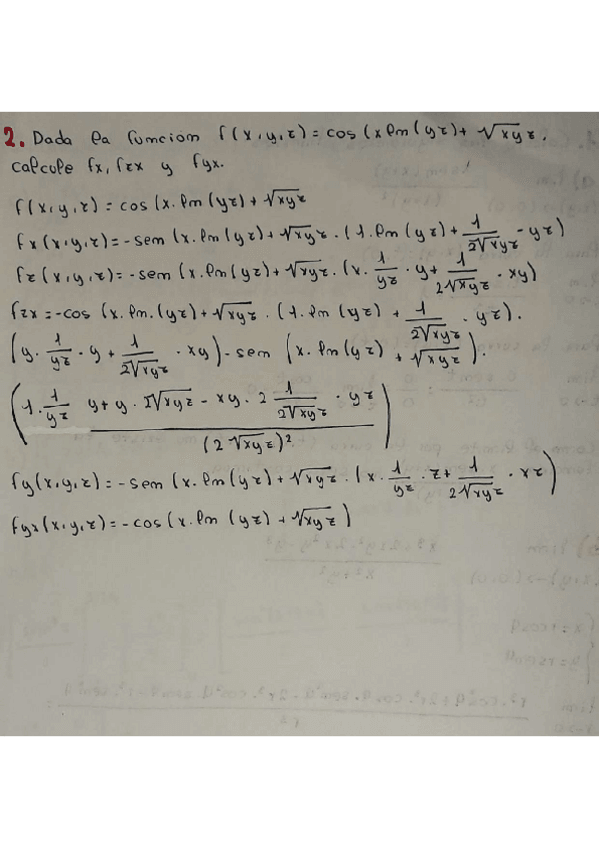 2. Dada la funcion f(x,y,z) = cos (x ln (yz) + √xyz.
calcule fx, fzx y fyx.
f(x,y,z) = cos (x. ln (yz) + √xyz
fx(x,y,z) = -sen (x. ln (yz) + √xyz . (1. ln (yz) + 1/2√xyz - yz)
fz(x,y,z) = -sen (x. ln (yz) + √xyz. (x. 1/yz · y + 1/2√xyz · xy)
fzx = -cos (x. ln. (yz) + √xyz . (1. ln (yz) + 1/2√xyz · yz).
(y. 1/yz · y + 1/2√xyz · xy) - sen (x. ln (yz) + √xyz).
(1. 1/yz y + y · 2√xyz - xy. 2 1/2√xyz · yz / (2 √xyz)²)
fy(x,y,z) = -sen (x. ln (yz) + √xyz . (x. 1/yz · z + 1/2√xyz · xz)
fyx(x,y,z) = -cos (x. ln (yz) + √xyz)